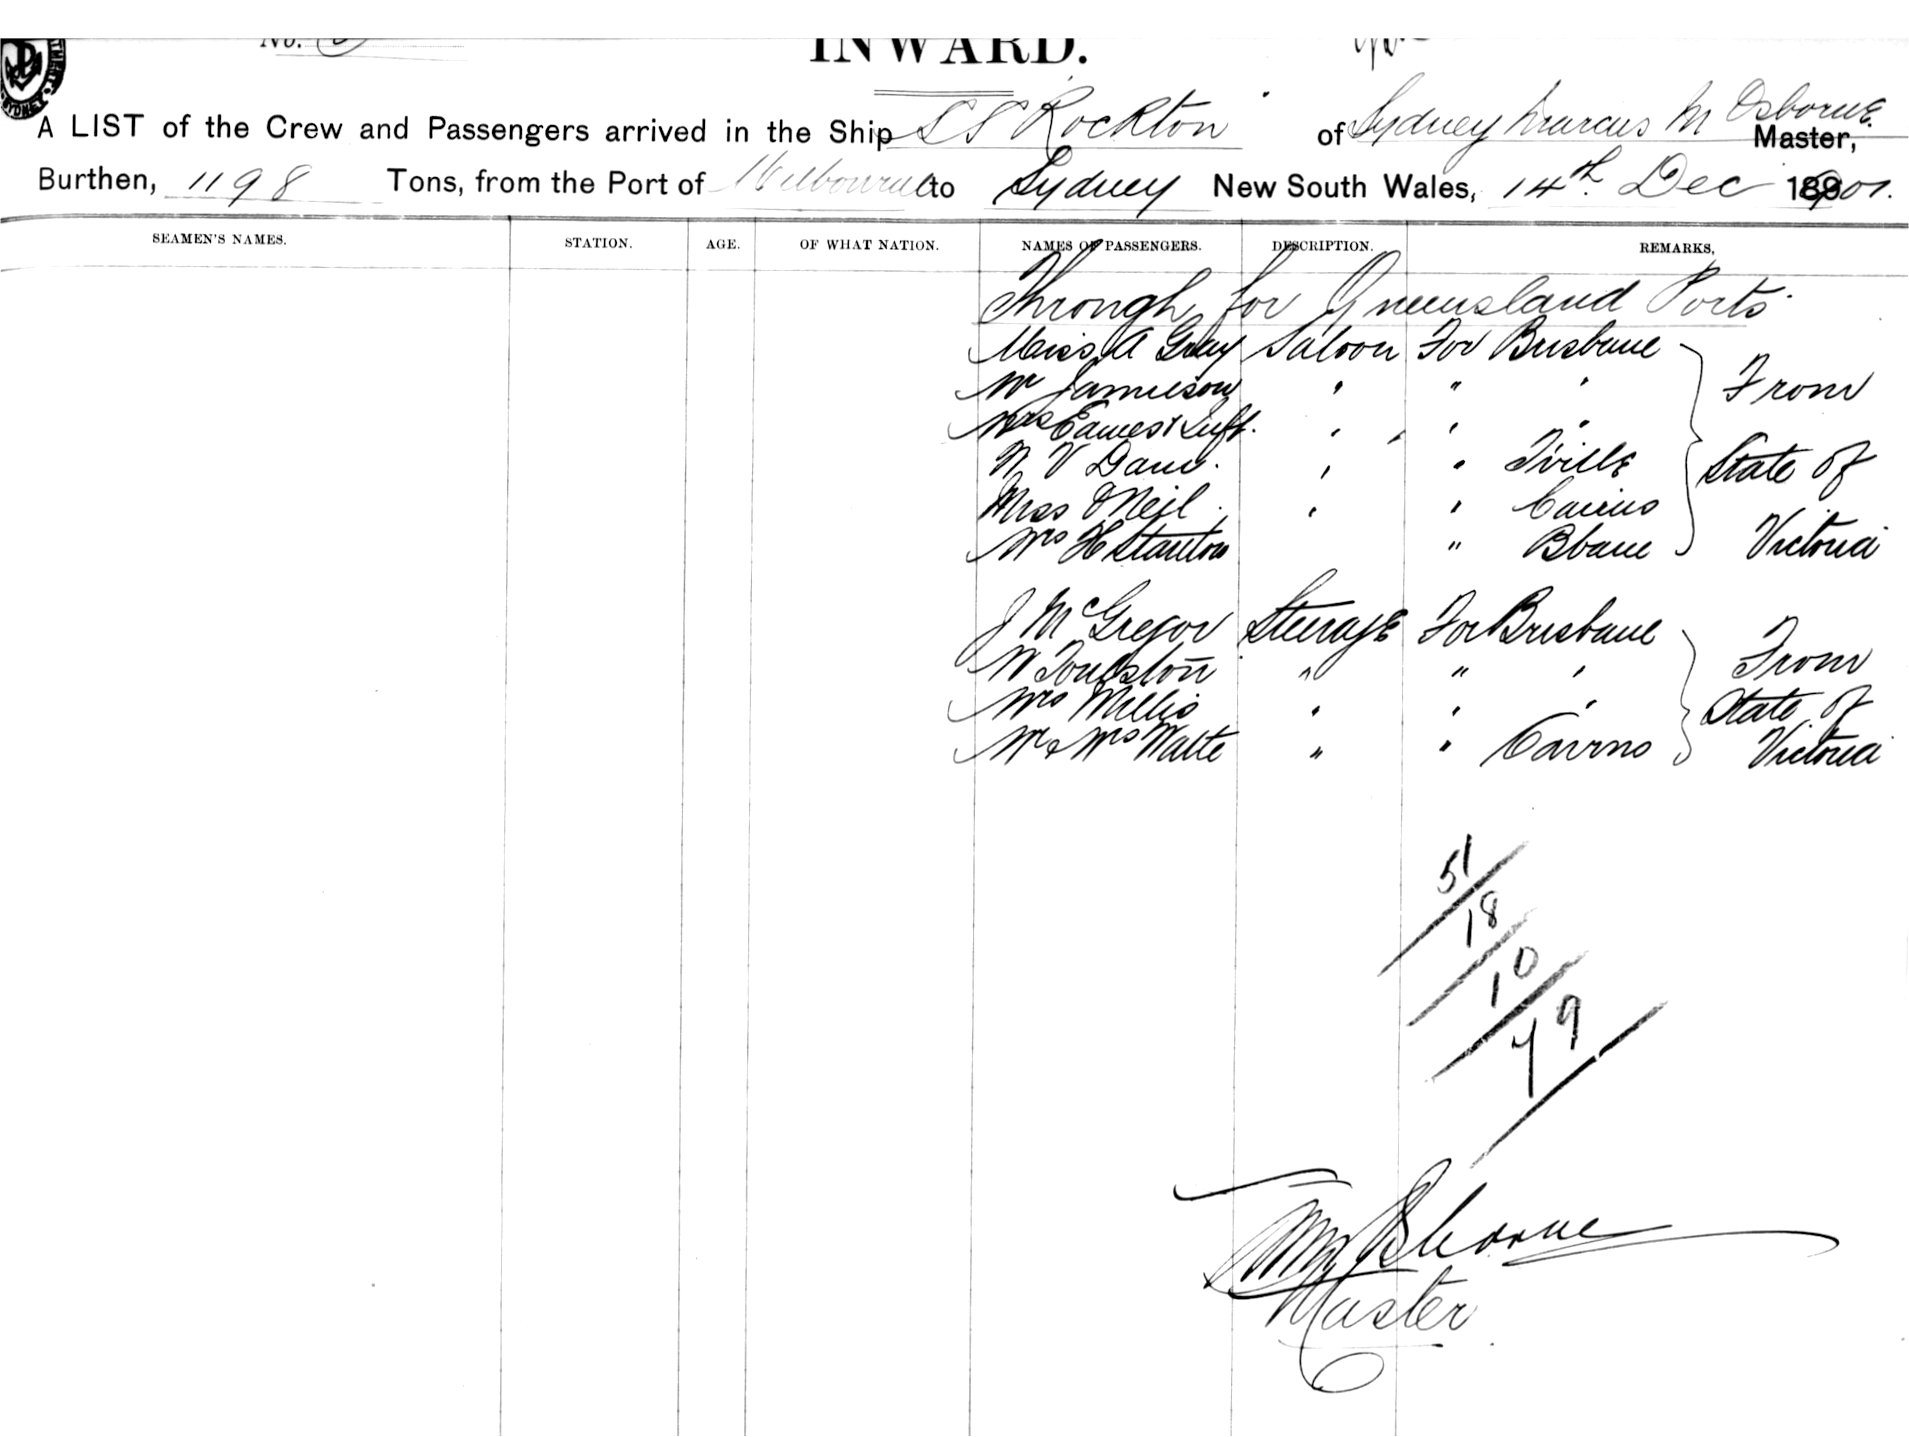 No.
INWARD.
A LIST of the Crew and Passengers arrived in the Ship SS Rockton of Sydney Marcus M Osborne Master,
Burthen, 1198 Tons, from the Port of Melbourne to Sydney New South Wales, 14th Dec 1901.
SEAMEN'S NAMES. STATION. AGE. OF WHAT NATION. NAMES OF PASSENGERS. DESCRIPTION. REMARKS.
Through for Queensland Ports
Miss A Gray Saloon For Brisbane
Mr Jamieson " " " From
Mrs Eames & Inft. " " "
" " T'ville State of
Miss O'Neil " " Cairns
Mrs H Stanton " Bbane Victoria
J McGregor Steerage For Brisbane
W " " " From
Mrs Willis " " " State of
Mr & Mrs Waite " " Cairns Victoria
51
18
10
79
Osborne
Master